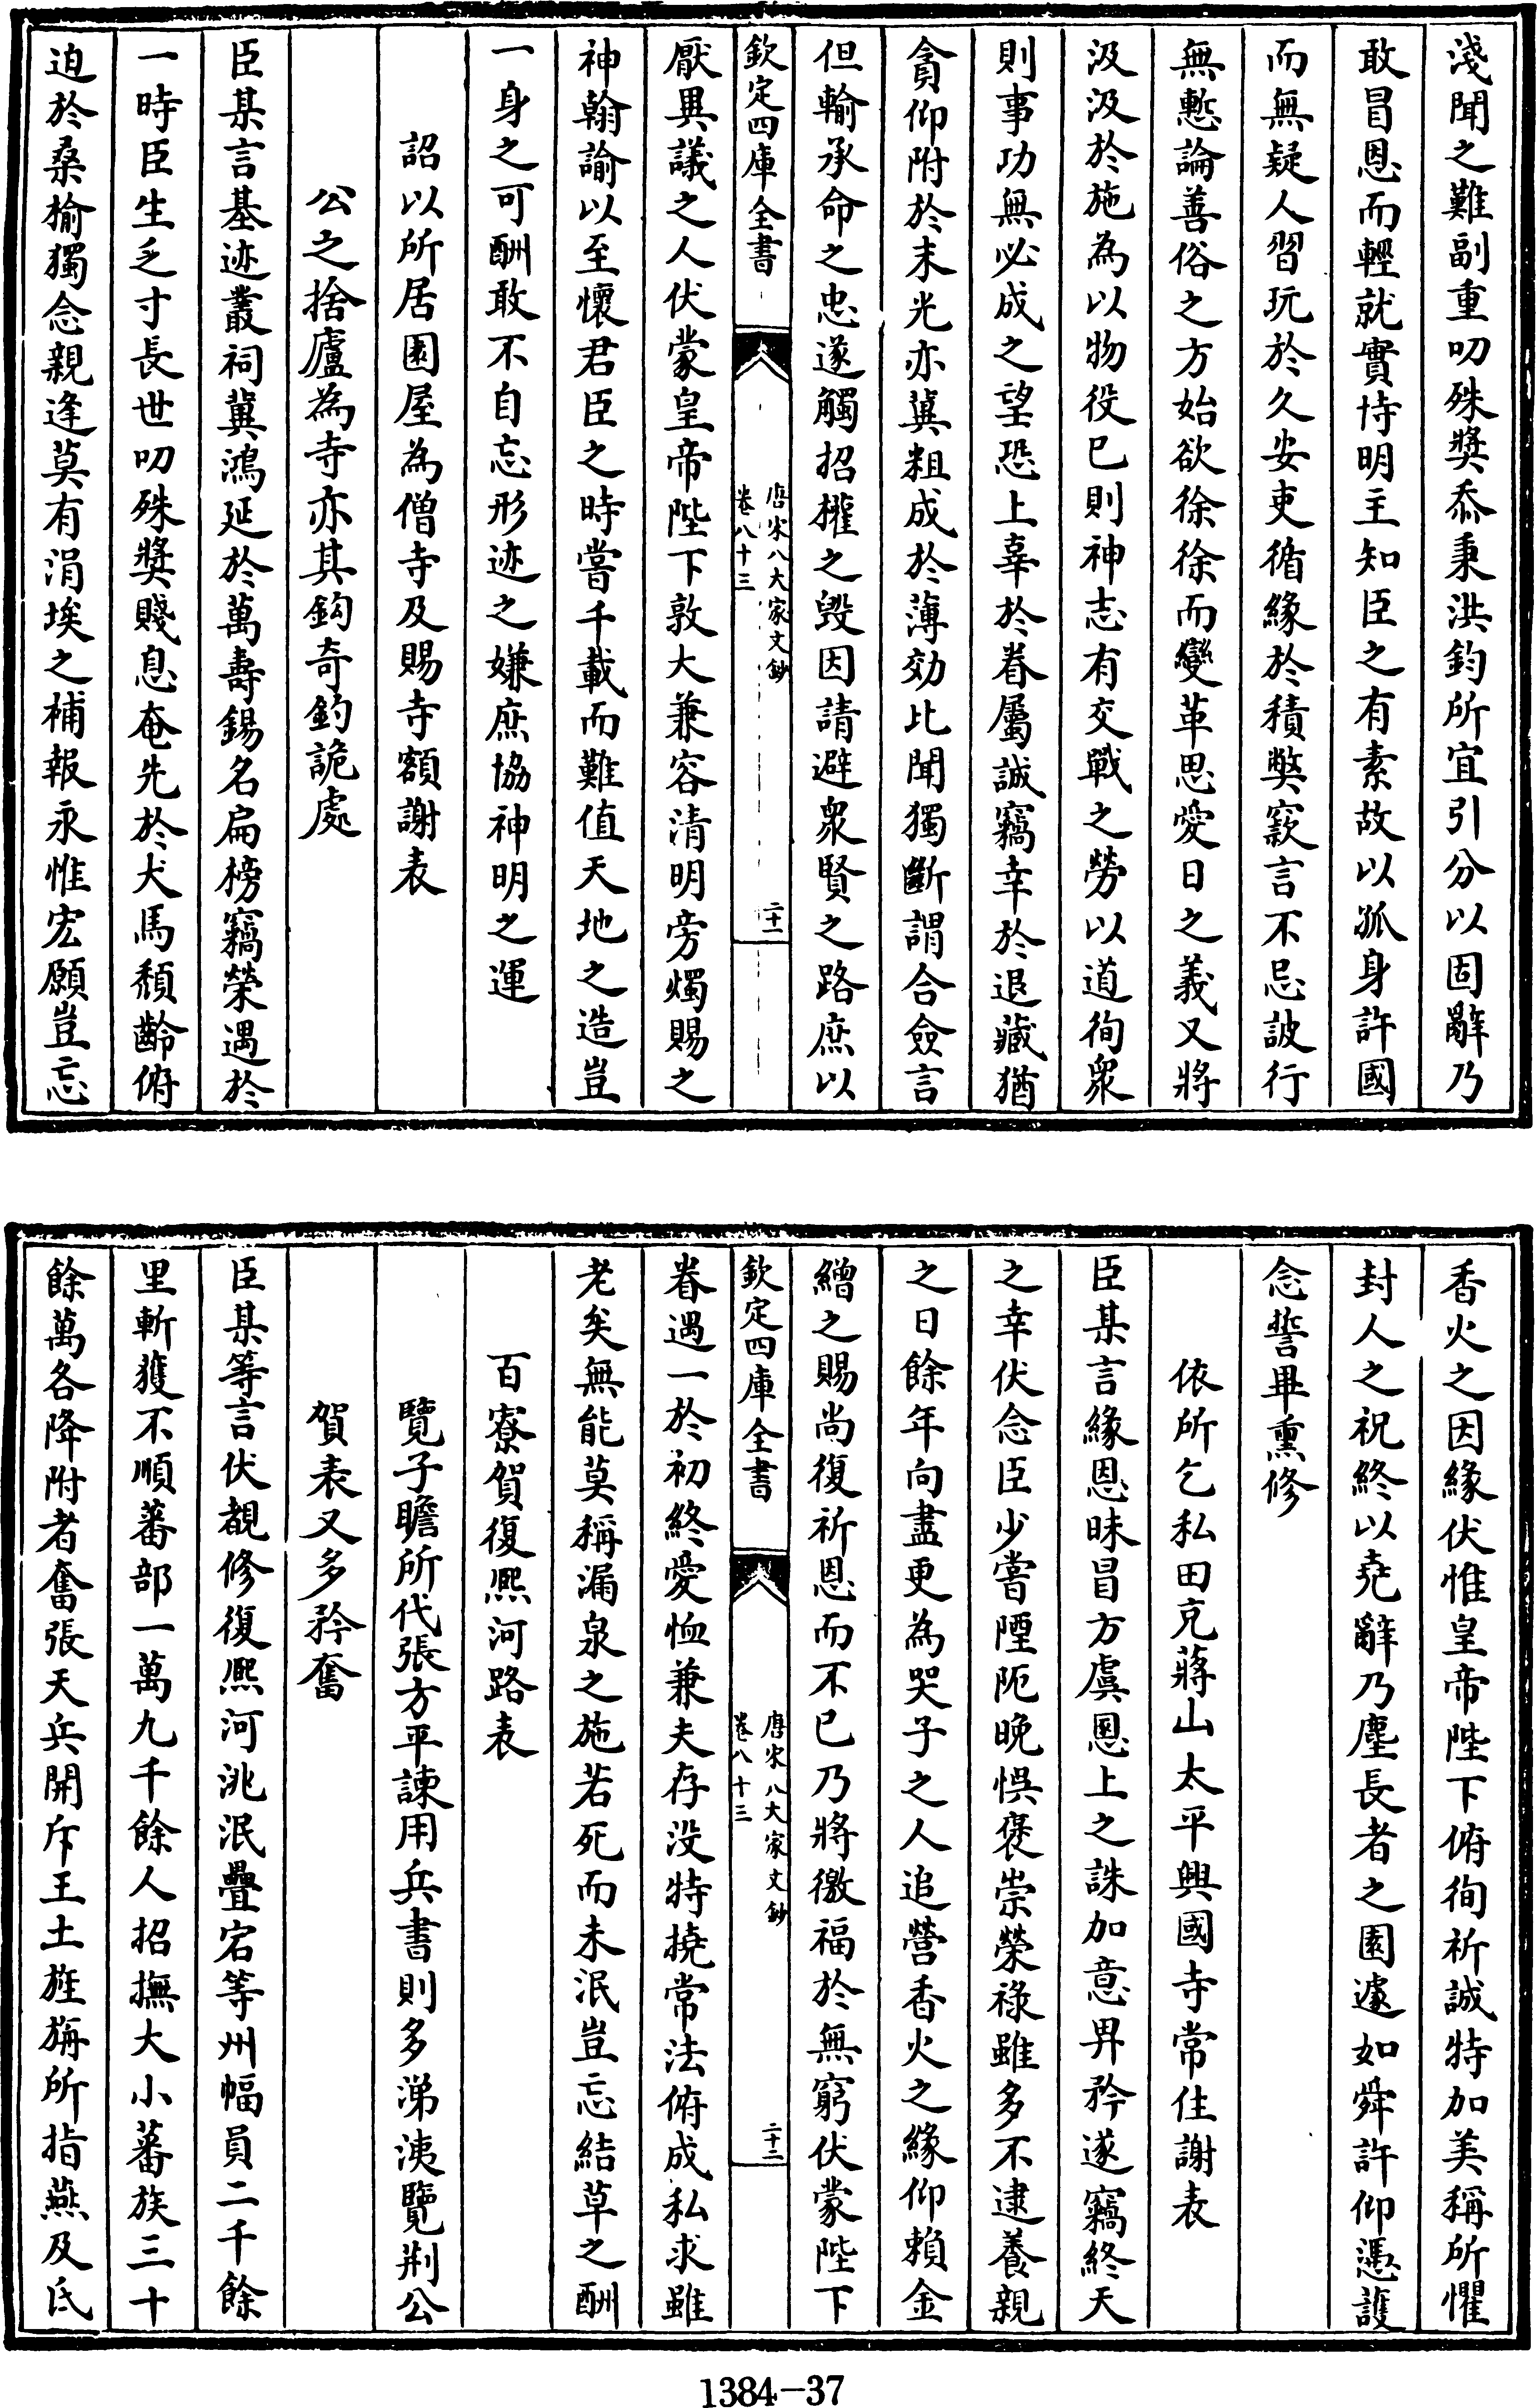 淺聞之難副重叨殊奬忝秉洪鈞所宜引分以固辭乃
敢冒恩而輕就實恃明主知臣之有素故以孤身許國
而無疑人習玩於久安吏循緣於積獘窾言不忌詖行
無慙論善俗之方始欲徐徐而變革思愛日之義又將
汲汲於施為以物役已則神志有交戰之勞以道徇衆
則事功無必成之望恐上辜於眷屬誠竊幸於退藏猶
貪仰附於末光亦冀粗成於薄効比聞獨斷謂合僉言
但輸承命之忠遂觸招權之毁因請避衆賢之路庶以
欽定四庫全書
唐宋八大家文鈔
卷八十三
二十一
厭異議之人伏蒙皇帝陛下敦大兼容清明旁燭賜之
神翰諭以至懷君臣之時嘗千載而難值天地之造豈
一身之可酬敢不自忘形迹之嫌庶協神明之運
詔以所居園屋為僧寺及賜寺額謝表
公之捨廬為寺亦其鈎奇釣詭處
臣某言基迹叢祠冀鴻延於萬壽錫名扁榜竊榮遇於
一時臣生乏寸長世叨殊奬賤息奄先於犬馬頽齡俯
迫於桑榆獨念親逢莫有涓埃之補報永惟宏願豈忘
香火之因緣伏惟皇帝陛下俯徇祈誠特加美稱所懼
封人之祝終以堯辭乃塵長者之園遽如舜許仰憑護
念誓畢熏修
依所乞私田克蔣山太平興國寺常住謝表
臣某言緣恩昧冒方虞恩上之誅加意畀矜遂竊終天
之幸伏念臣少嘗陻阨晚悞褒崇榮祿雖多不逮養親
之日餘年向盡更為哭子之人追營香火之緣仰賴金
繒之賜尚復祈恩而不已乃將徼福於無窮伏蒙陛下
欽定四庫全書
唐宋八大家文鈔
卷八十三
二十二
眷遇一於初終愛恤兼夫存没特撓常法俯成私求雖
老矣無能莫稱漏泉之施若死而未泯豈忘結草之酬
百寮賀復熈河路表
覽子瞻所代張方平諫用兵書則多涕洟覽荆公
賀表又多矜奮
臣某等言伏覩修復熈河洮泯疊宕等州幅員二千餘
里斬獲不順蕃部一萬九千餘人招撫大小蕃族三十
餘萬各降附者奮張天兵開斥王土旌旃所指燕及氐
1384-37